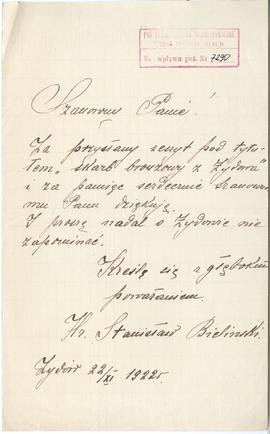 wpływu poz. Nr 7290
Szanowny Panie!
Za przysłany zeszyt pod tytu-
łem „Skarb bronzowy z Żydowa"
i za pamięć serdecznie szanowne-
mu Panu dziękuję.
I proszę nadal o Żydowie nie
zapominać.
Kreślę się z głębokim
poważaniem
Hr. Stanisław Bieliński.
Żydów 22/XI 1922 r.